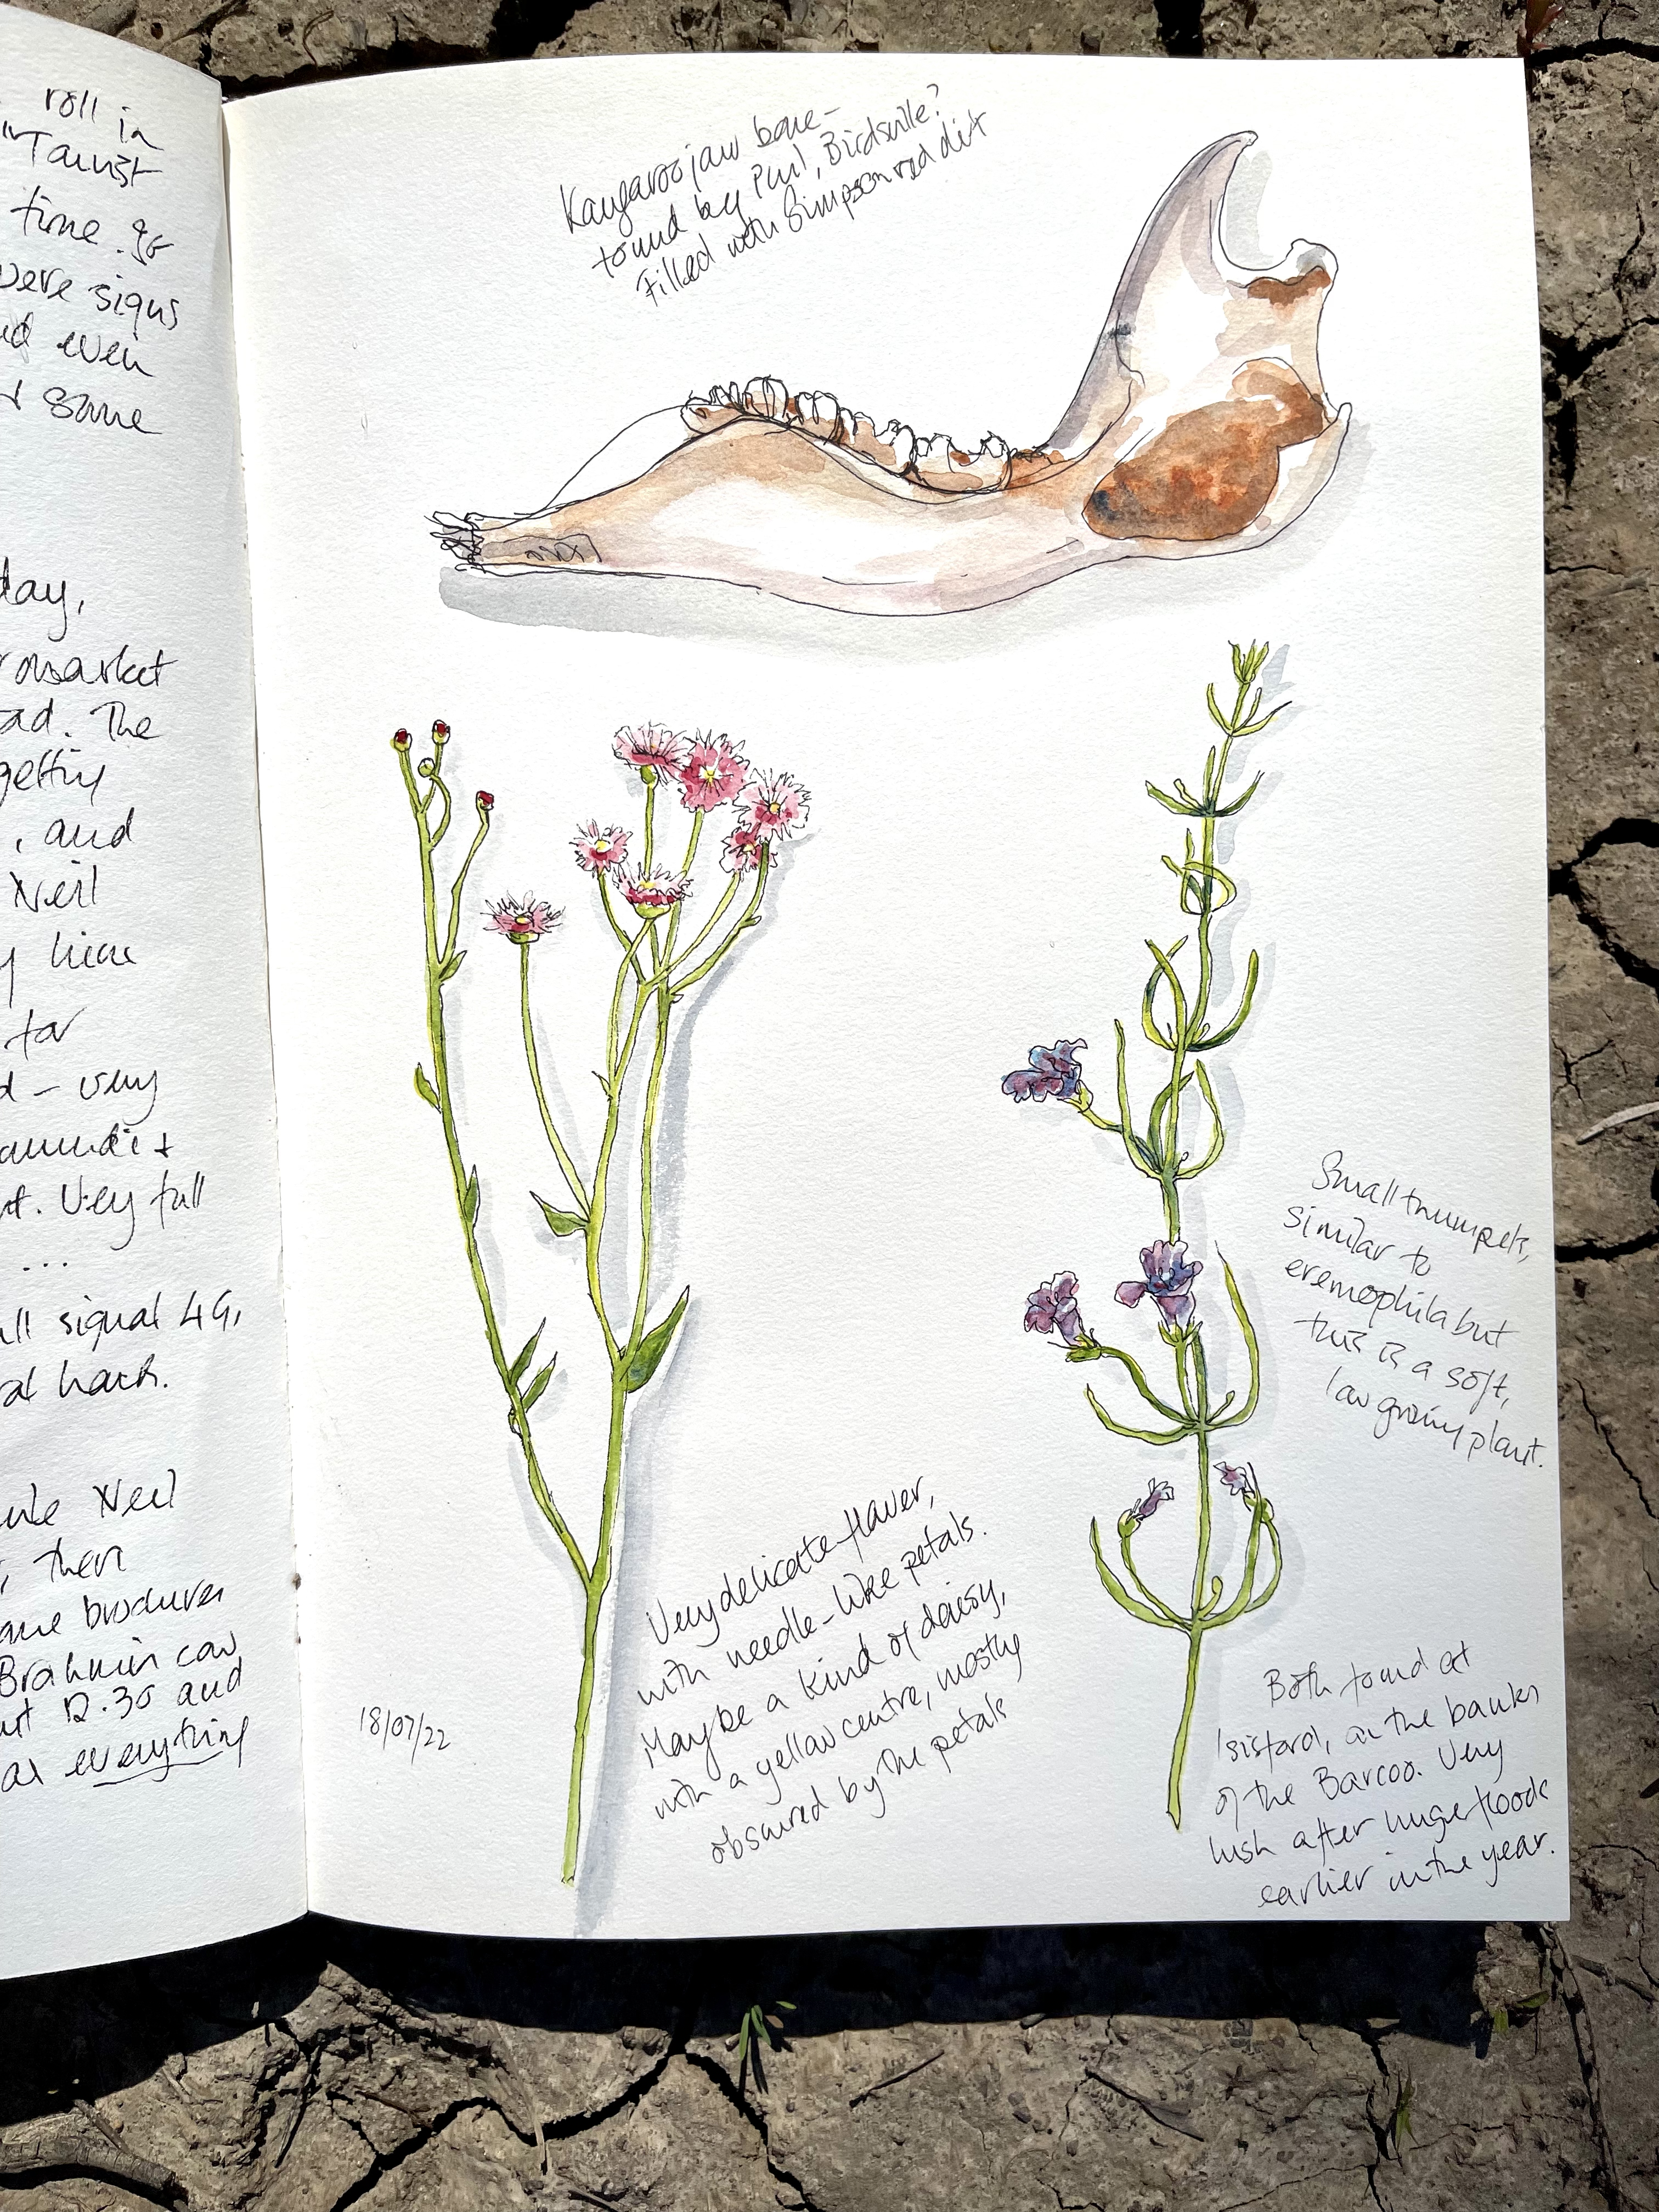 roll in
Tourist
time. go
were signs
even
some
day,
market
The
getting
, and
Neil
for
- very
t. Very full
...
signal 4G,
hack.
Neil
, then
brochures
Brahmin cow
12.30 and
as everything
Kangaroo jaw bone -
found by Phil, Birdsville?
Filled with Simpson red dirt
Small trumpets,
similar to
eremophila but
this is a soft,
low growing plant.
Very delicate flower,
with needle-like petals.
Maybe a kind of daisy,
with a yellow centre, mostly
obscured by the petals
18/07/22
Both found at
Isisford, on the banks
of the Barcoo. Very
lush after huge floods
earlier in the year.